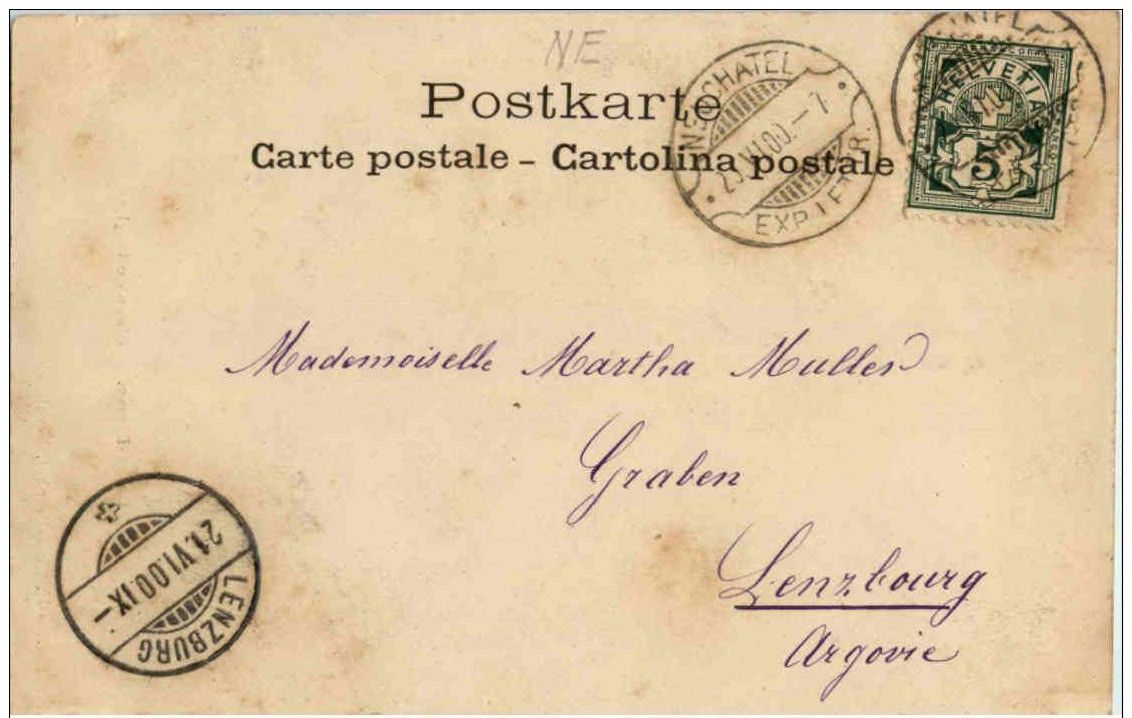 NE
Postkarte
Carte postale - Cartolina postale
HELVETIA
5
EXP. LETTR.
Mademoiselle Martha Muller
Graben
Lenzbourg
Argovie
21.VI.00.IX-
LENZBURG